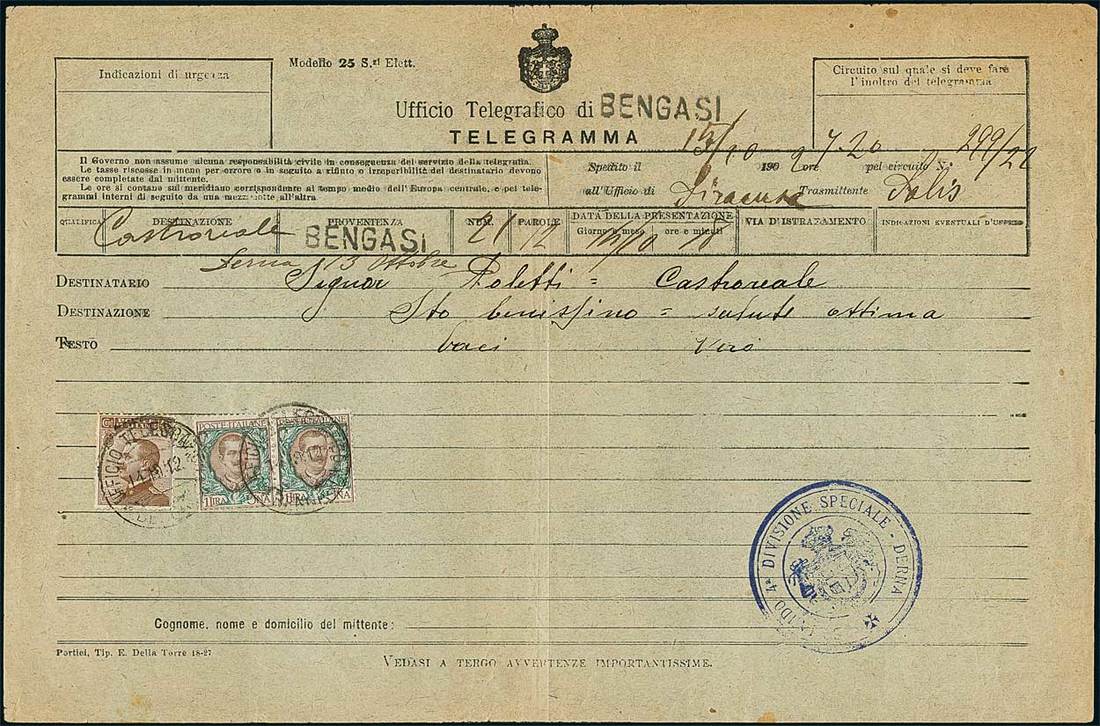 Indicazioni di urgenza
Modello 25 S.zi Elett.
Circuito sul quale si deve fare
l'inoltro del telegramma
Ufficio Telegrafico di BENGASI
TELEGRAMMA
Il Governo non assume alcuna responsabilità civile in conseguenza del servizio della telegrafia.
Le tasse riscosse in meno per errore o in seguito a rifiuto o irreperibilità del destinatario devono
essere completate dal mittente.
Le ore si contano sul meridiano corrispondente al tempo medio dell'Europa centrale, e pei tele-
grammi interni di seguito da una mezzanotte all'altra
Spedito il 14/10 190 ore 7.20 pel circuito N. 299/22
all'Ufficio di Siracusa Trasmittente
QUALIFICA DESTINAZIONE PROVENIENZA NUM. PAROLE DATA DELLA PRESENTAZIONE VIA D'ISTRADAMENTO INDICAZIONI EVENTUALI D'UFFICIO
Giorno e mese ore e minuti
Castroreale BENGASI 21 12 14/10 18
Derna 13 Ottobre
DESTINATARIO Signor Poletti = Castroreale
DESTINAZIONE Sto benissino = salute ottima
TESTO baci
POSTE ITALIANE
1 LIRA UNA
POSTE ITALIANE
1 LIRA UNA
UFFICIO TELEGR
14.10.12
4ª DIVISIONE SPECIALE - DERNA
Cognome, nome e domicilio del mittente:
Portici, Tip. E. Della Torre 18-27
VEDASI A TERGO AVVERTENZE IMPORTANTISSIME.